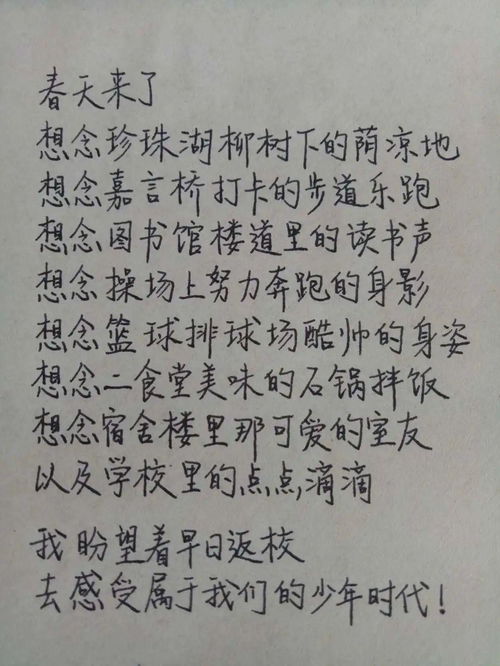 春天来了
想念珍珠湖柳树下的荫凉地
想念嘉言桥打卡的步道乐跑
想念图书馆楼道里的读书声
想念操场上努力奔跑的身影
想念篮球排球场酷帅的身姿
想念二食堂美味的石锅拌饭
想念宿舍楼里那可爱的室友
以及学校里的点点滴滴
我盼望着早日返校
去感受属于我们的少年时代!